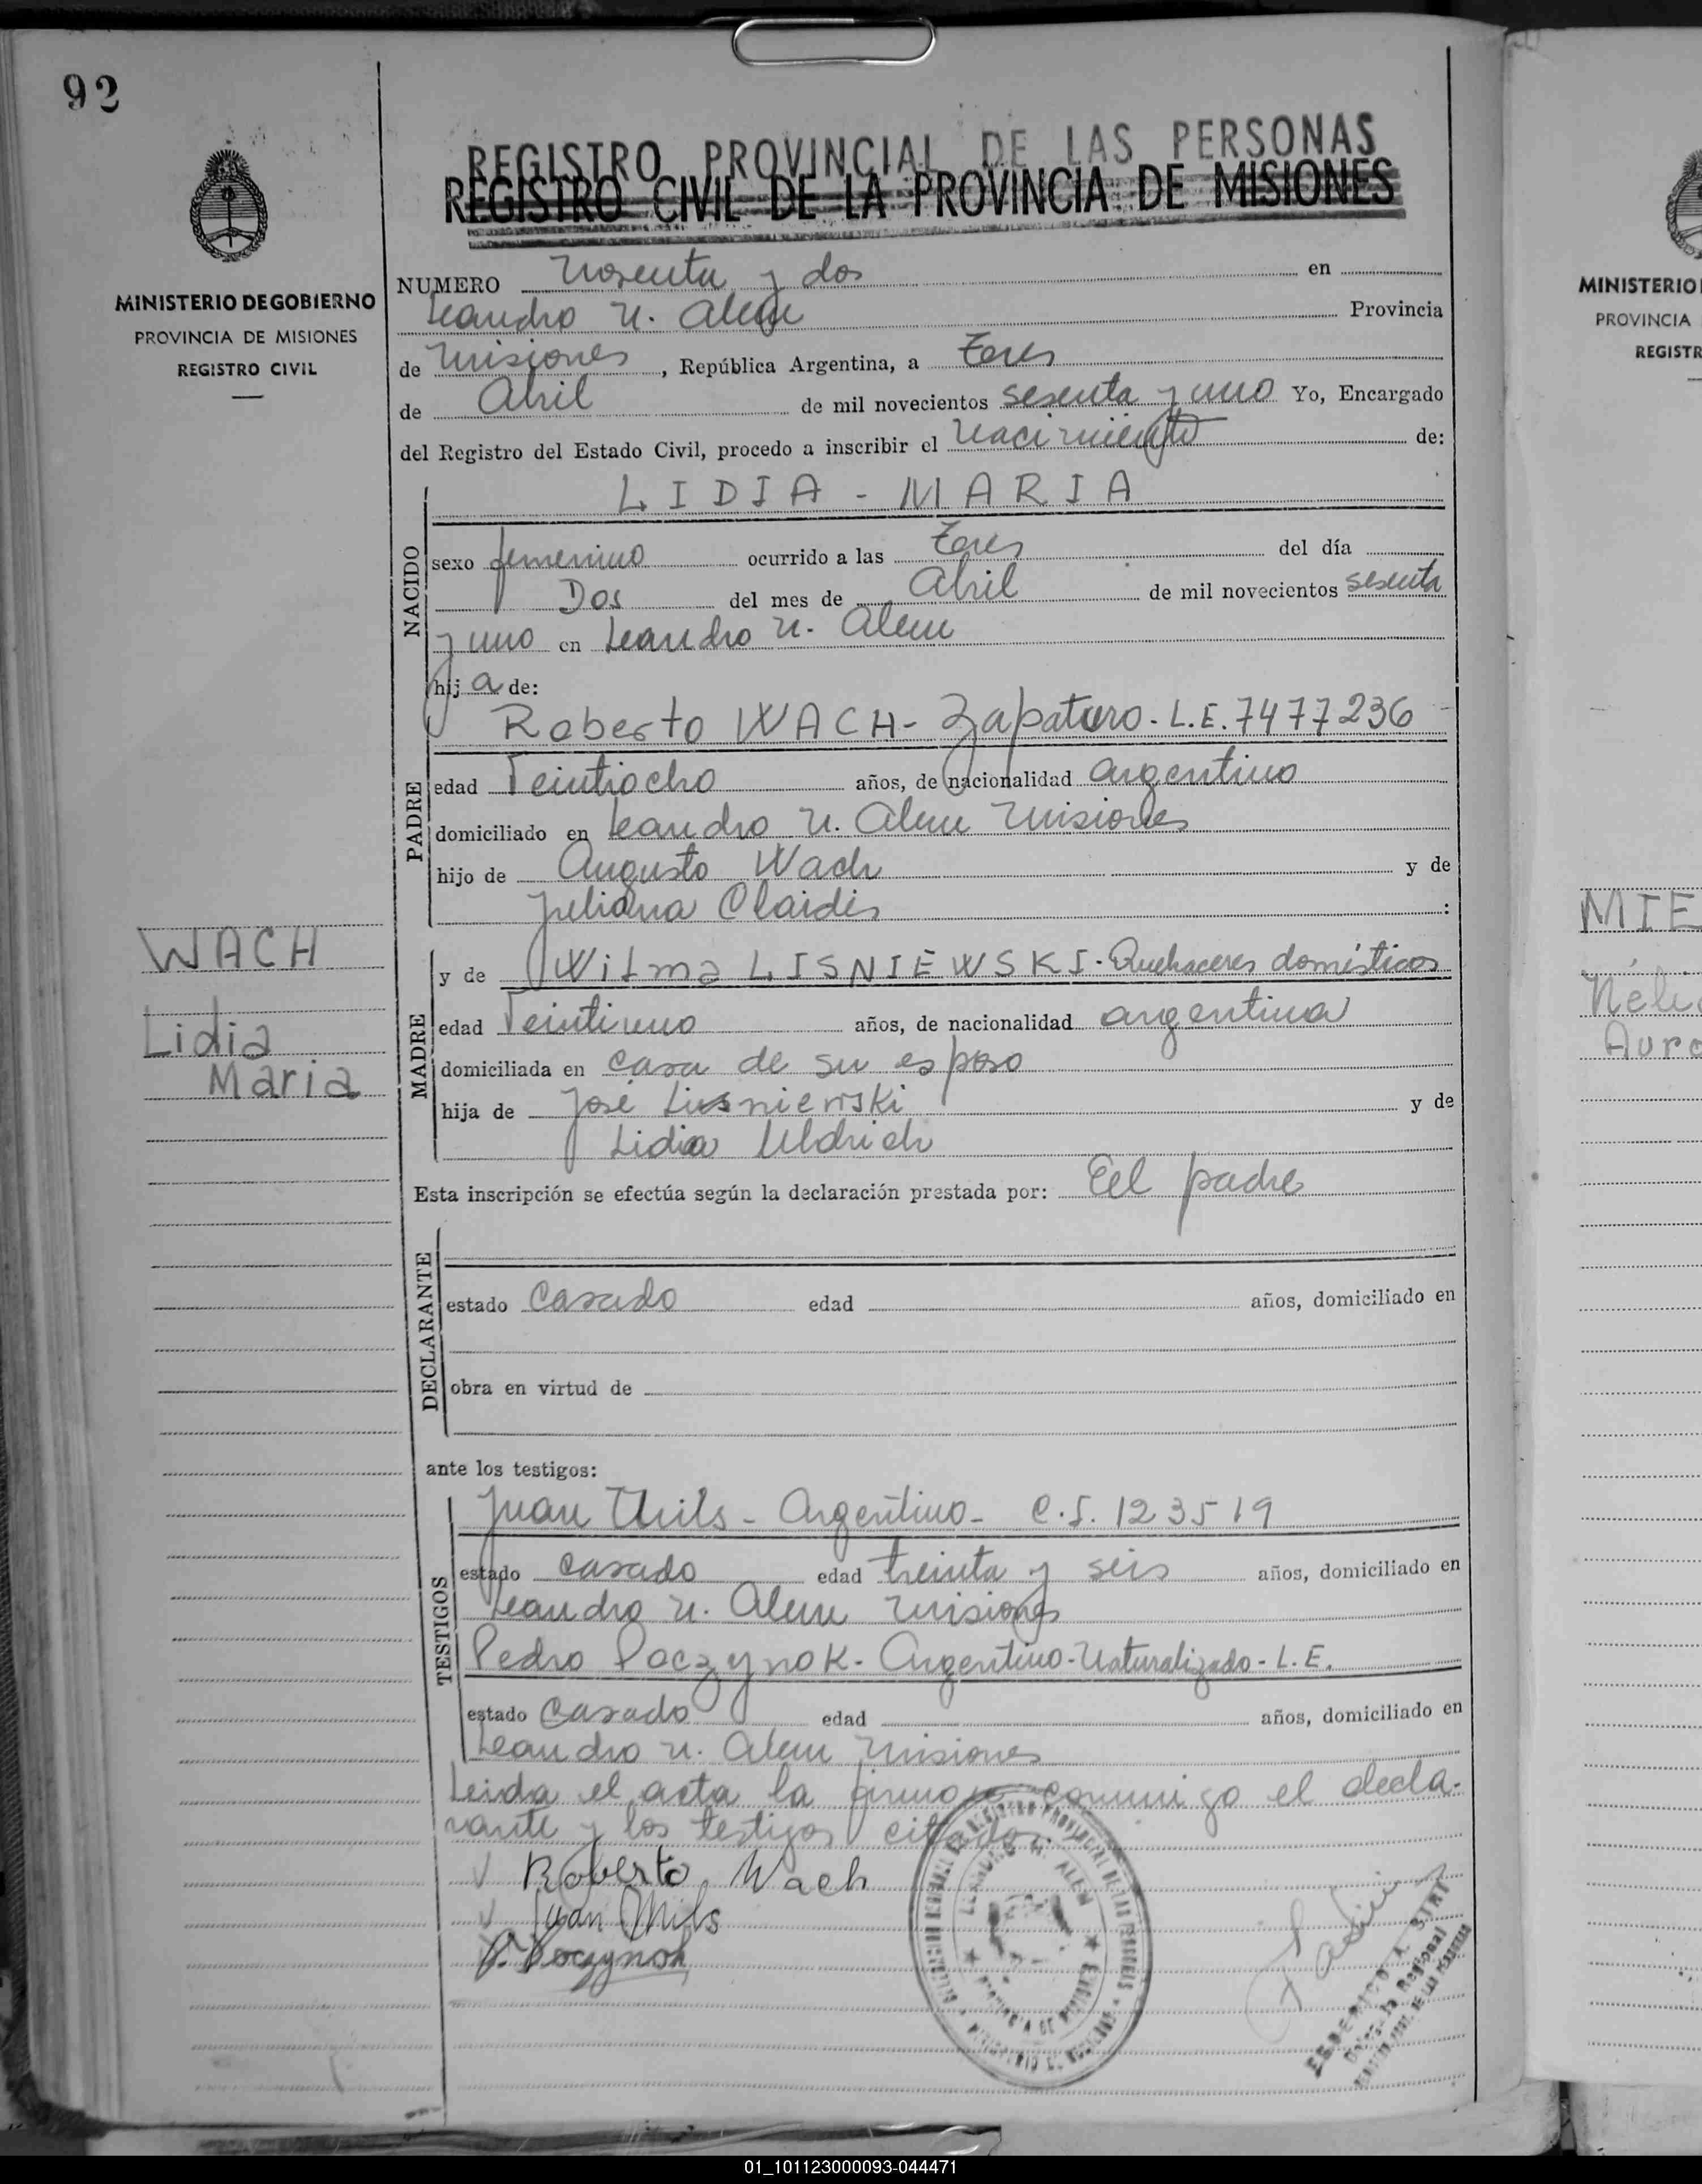 92
REGISTRO PROVINCIAL DE LAS PERSONAS
REGISTRO CIVIL DE LA PROVINCIA DE MISIONES
MINISTERIO DE GOBIERNO
PROVINCIA DE MISIONES
REGISTRO CIVIL
NUMERO Noventa y dos en
Leandro N. Alem Provincia
de Misiones, República Argentina, a Tres
de Abril de mil novecientos sesenta y uno Yo, Encargado
del Registro del Estado Civil, procedo a inscribir el Nacimiento de:
NACIDO
LIDIA - MARIA
sexo femenino ocurrido a las Tres del día
Dos del mes de Abril de mil novecientos sesenta
y uno en Leandro N. Alem
hija de:
PADRE
Roberto WACH - Zapatero - L.E. 7477236
edad Veintiocho años, de nacionalidad argentino
domiciliado en Leandro N. Alem Misiones
hijo de Augusto Wach y de
Juliana Claidis
WACH
Lidia
Maria
MADRE
y de Wilma LISNIEWSKI - Quehaceres domésticos
edad Veintiuno años, de nacionalidad argentina
domiciliada en casa de su esposo
hija de José Lisniewski y de
Lidia Uldrich
Esta inscripción se efectúa según la declaración prestada por: El padre
DECLARANTE
estado Casado edad años, domiciliado en
obra en virtud de
ante los testigos:
TESTIGOS
Juan Thils - Argentino - C.I. 123519
estado casado edad treinta y seis años, domiciliado en
Leandro N. Alem Misiones
Pedro Poczynok - Argentino - Naturalizado - L.E.
estado Casado edad años, domiciliado en
Leandro N. Alem Misiones
Leida el acta la firman conmigo el decla-
rante y los testigos citados.
Roberto Wach
Juan Thils
P. Poczynok
LEANDRO N. ALEM
PROVINCIA DE MISIONES
MINISTERIO
PROVINCIA
REGISTR
MIE
Auro
01_101123000093-044471